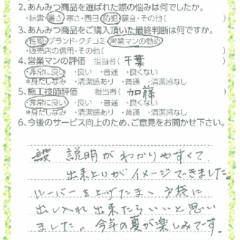 2.あんみつ商品を選ばれた際の悩みは何でしたか。
暑さ・寒さ・西日・防犯・騒音・その他(
3.あんみつ商品をご購入頂いた最終判断は何ですか。
ブランド・クチコミ・営業マンの勧め
・その他(
4.営業マンの評価 担当者( 千葉
・非常に良い ・良い ・普通 ・良くない
・身だしなみ ・清潔感有り ・普通 ・清潔感なし
5.施工技術評価 担当者( 加藤
・非常に良い ・良い ・普通 ・良くない
・身だしなみ ・清潔感有り ・普通 ・清潔感なし
6.今後のサービス向上のため、ご意見をお聞かせ下さい。
説明がわかりやすくて
出来上りがイメージできました。
レーバーを上げたまま 戸袋に
出し入れ出来たらいいと思い
ました。今年の夏が楽しみです。